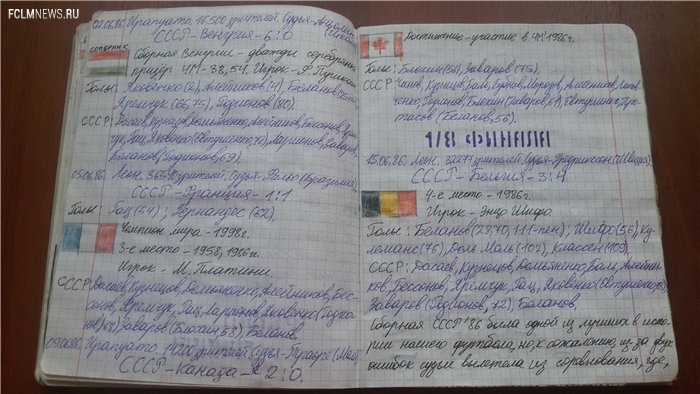 FCLMNEWS.RU
02.06.86 Ирапуато. 16500 зрителей. Судья - Аньолин (Италия)
СССР - Венгрия - 6:0
соперник
Сборная Венгрии - дважды серебряный
призёр ЧМ - 38, 54. Игрок - Ф. Пушкаш
Голы: Яковенко (2), Алейников (4), Беланов
Яремчук (66,75), Родионов (80)
СССР: Дасаев, Кузнецов, Демьяненко, Алейников, Бессонов
Рац, Яковенко (Евтушенко, 72), Ларионов, Заваров,
Беланов (Родионов, 69).
05.06.86 Леон. 36540 зрителей. Судья - (Бразилия)
СССР - Франция - 1:1
Голы: Рац (54); Фернандес (62).
Чемпион мира - 1998г.
3-е место - 1958, 1986г.
Игрок - М. Платини.
СССР: Дасаев, Кузнецов, Демьяненко, Алейников, Бес-
сонов, Яремчук, Рац, Ларионов, Яковенко (Родио-
нов, Заваров (Блохин 58), Беланов.
09.06.86 Ирапуато. 14200 зрителей. Судья - Траоре
СССР - Канада - 2:0.
Достижение - участие в ЧМ 1986г.
Голы: Блохин (58), Заваров (75).
СССР: Чанов, Кузнецов, Баль, Бубнов, Морозов, Алейников, Литов-
ченко, Родионов, Блохин (Заваров, 61), Евтушенко, Про-
тасов (Беланов, 56).
1/8 ФИНАЛА
15.06.86. Леон. 32277 зрителей. Судья - Фредрикссон (Швеция)
СССР - Бельгия - 3:4
4-е место - 1986г.
Игрок - Энцо Шифо.
Голы: Беланов (27,70,111-пен); Шифо (56), Ку-
леманс (76), Демоль (102), Классен (109).
СССР: Дасаев, Кузнецов, Демьяненко, Баль, Алейни-
ков, Бессонов, Яремчук, Рац, Яковенко (Евтушенко,
Заваров (Родионов, 72) Беланов.
Сборная СССР'86 была одной из лучших в исто-
рии нашего футбола, но, к сожалению, из-за двух
ошибок судьи вылетела из соревнования, где,